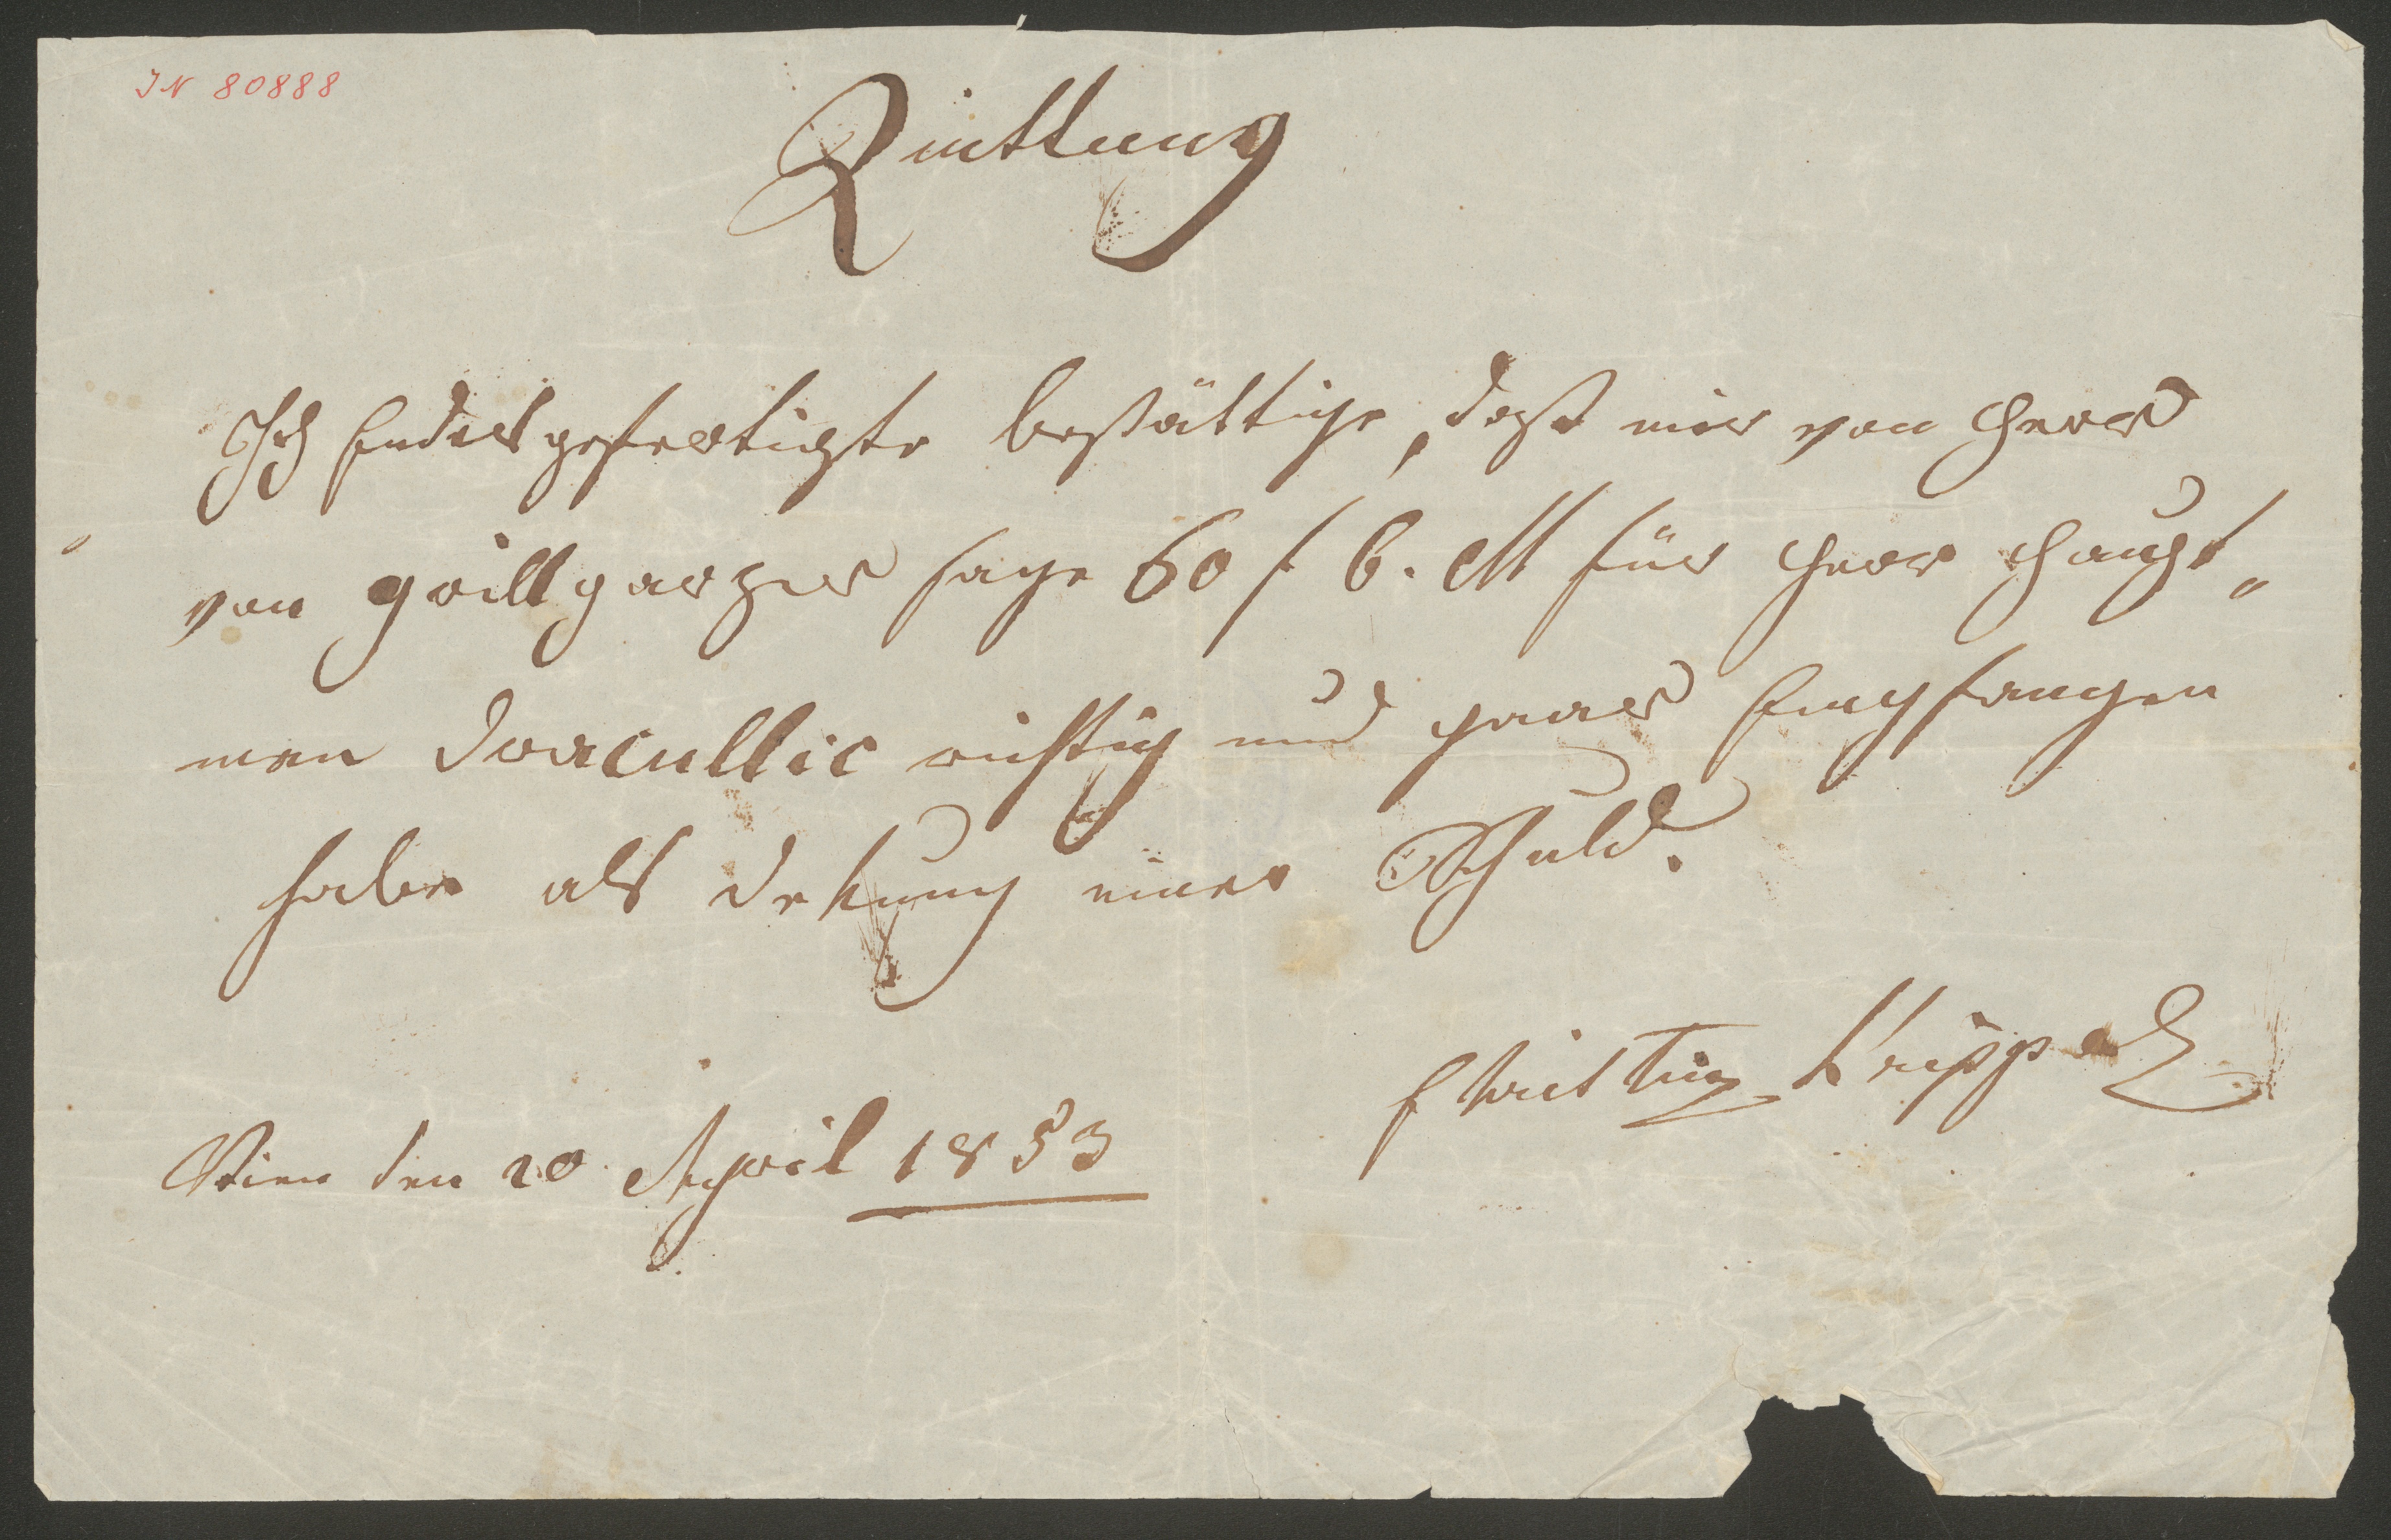 IN 80888
Quittung
Ich Endesgefertigte bestättige, daß mir von Herr
von Grillparzer sage 60 f C. M für Herr Haupt„
man Draculic richtig und paar Empfangen
habe als Dekung einer Schuld.
Wien den 20 April 1853